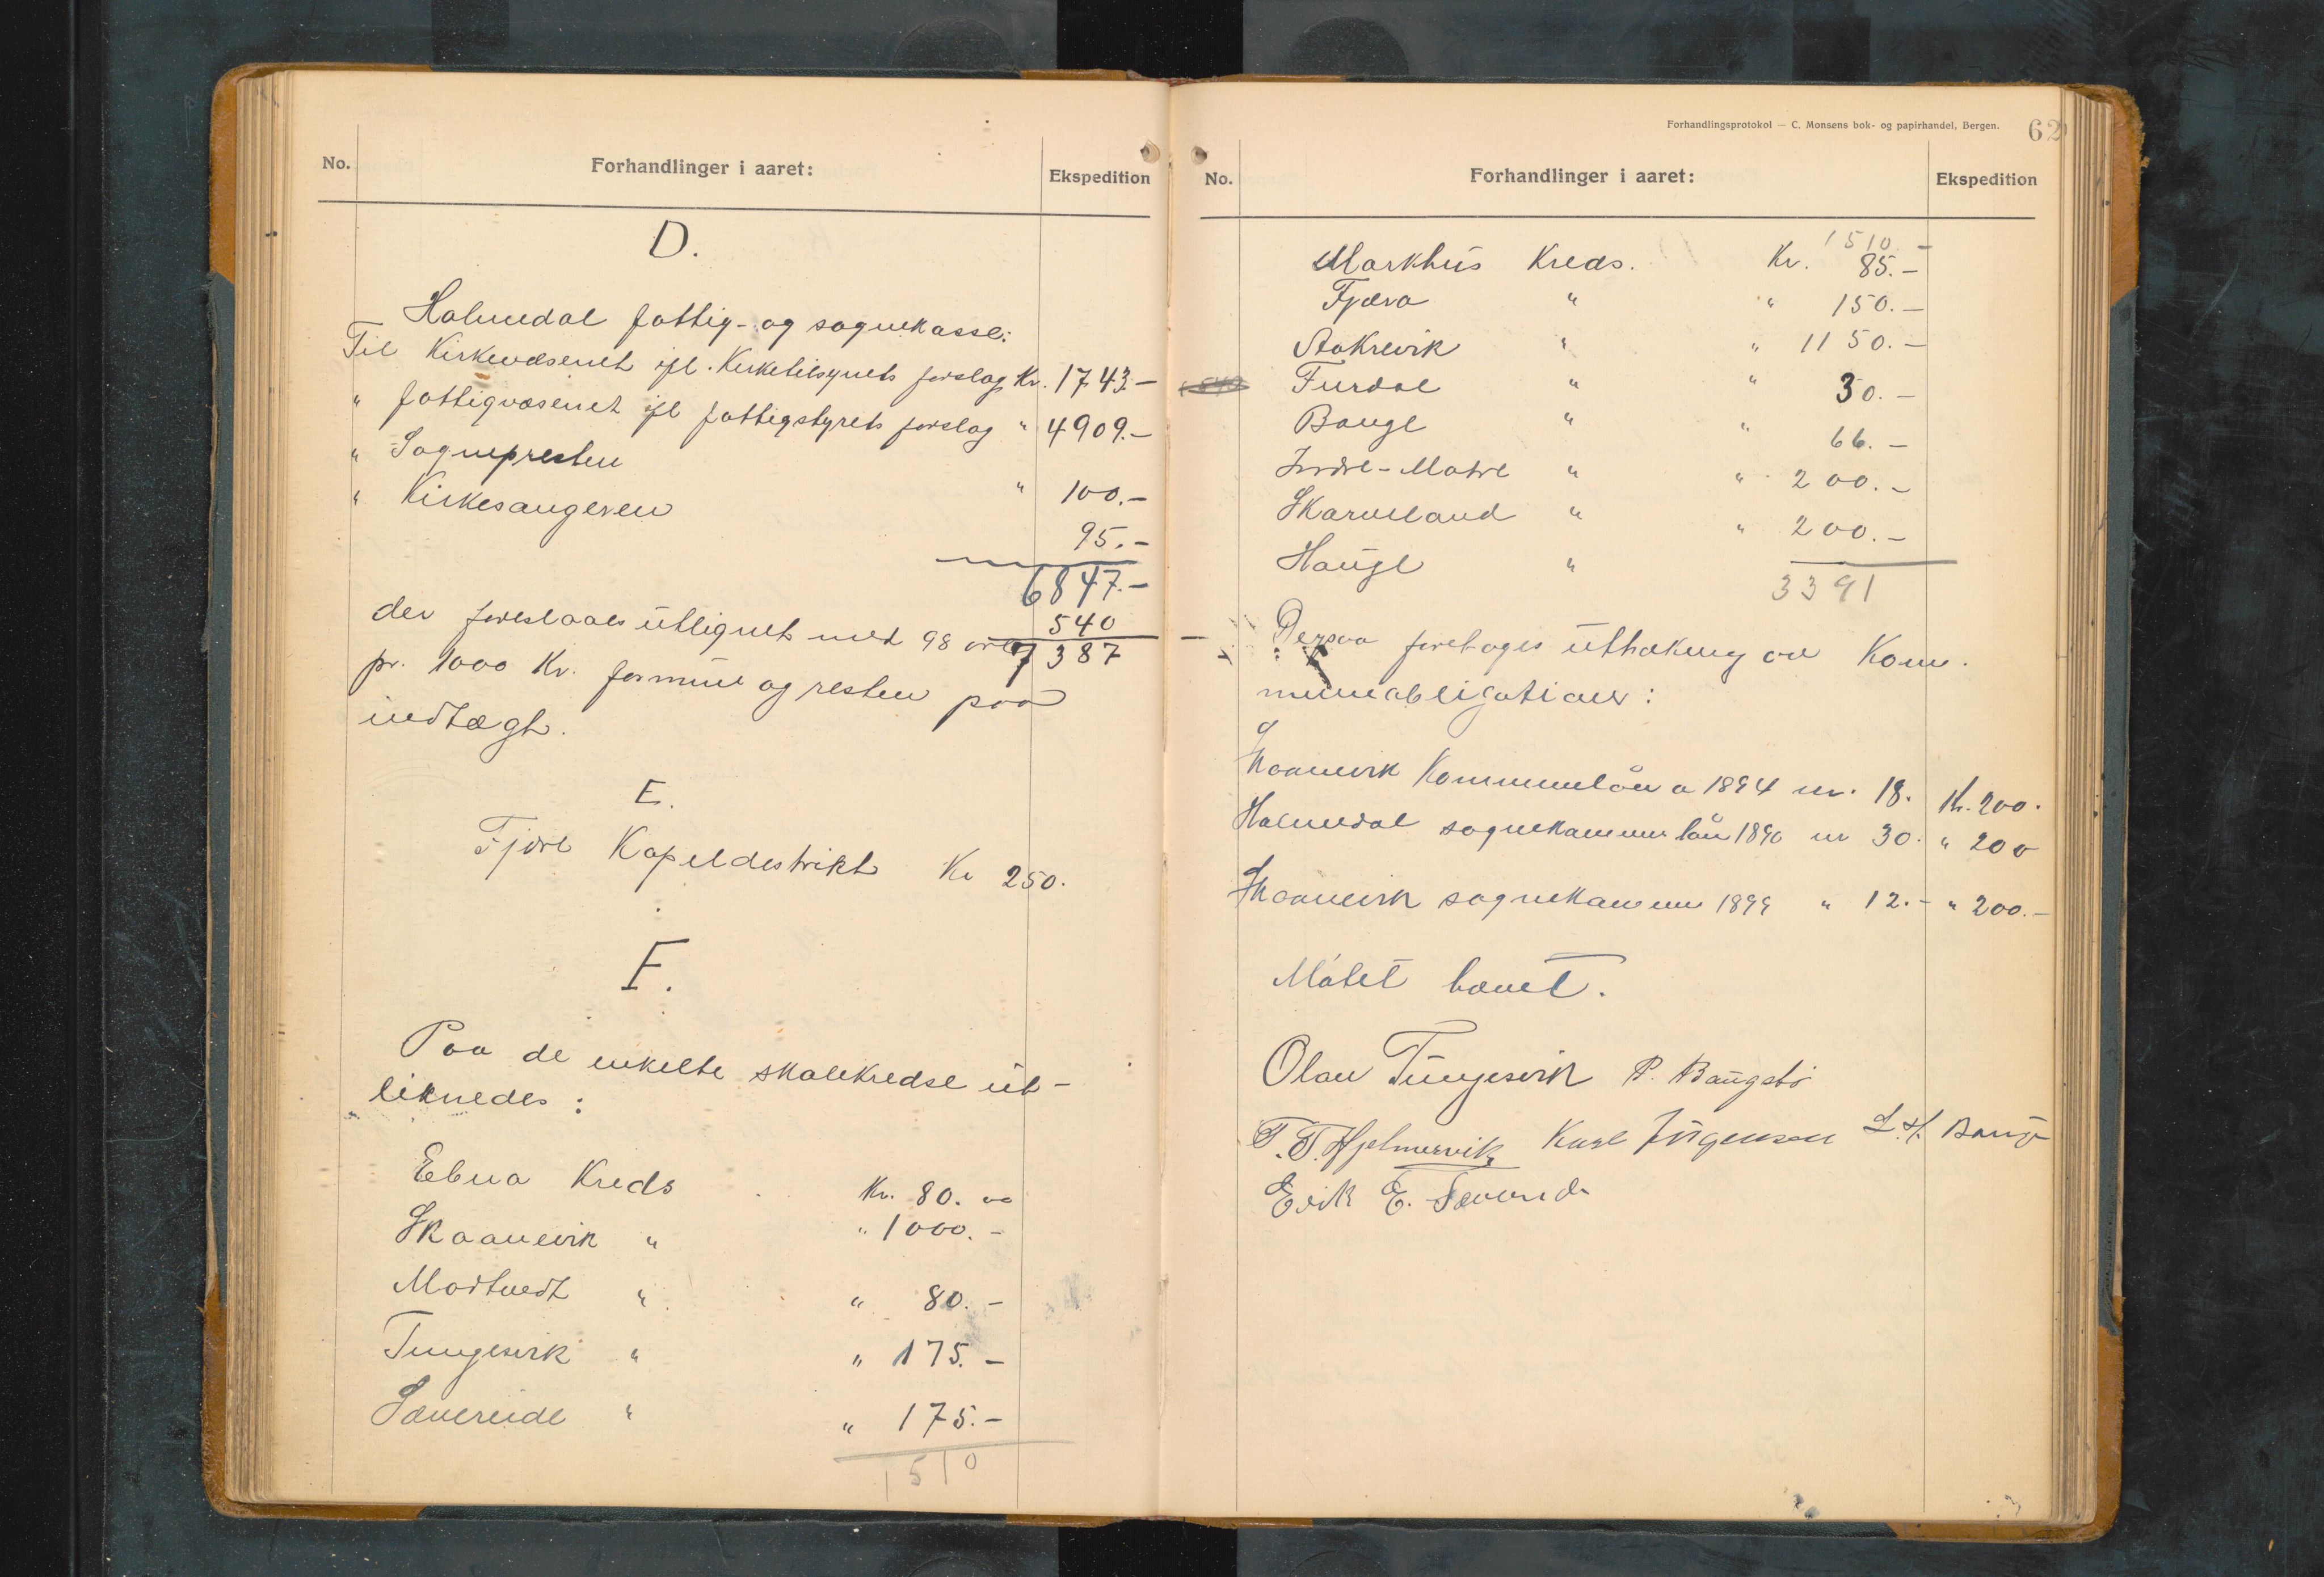 No.
Forhandlinger i aaret:
Ekspedition
D.
Holmedal fattig- og sognekasse:
Til Kirkevæsenet ifl. Kirketilsynets forslag Kr. 1743.-
" fattigvæsenet ifl fattigstyrets forslag " 4909.-
" Sognepresten " 100.-
" Kirkesangeren 95.-
6847.-
540
7387
der foreslaaes utlignet med 98 øre
pr. 1000 Kr. formue og resten paa
indtægt.
E.
Fjære Kapeldistrikt Kr 250.
F.
Paa de enkelte skolekredse ut-
liknedes:
Ebna Kreds Kr. 80.00
Skaanevik " " 1000.-
Mortvedt " " 80.-
Tungesvik " " 175.-
Sævereide " " 175.-
1510
Forhandlingsprotokol — C. Monsens bok- og papirhandel, Bergen.
62
No.
Forhandlinger i aaret:
Ekspedition
1510 -
Markhus Kreds. Kr. 85.-
Fjæra " " 150.-
Aakrevik " " 1150.-
Furdal " " 30.-
Bauge " " 66.-
Indre-Matre " " 200.-
Skarveland " " 200.-
Hauge "
3391
Dersaa foretages uttrækning av Kom-
muneobligationer:
Skaanevik Kommunelån a 1894 nr. 18. Kr. 200.
Holmedal sognekommunelån 1890 nr 30. " 200
Skaanevik sognekommune 1899 " 12.- " 200.-
Mötet hævet.
Olav Tungesvik P. Baugstö
T. T. Hjelmervik Karl Jörgensen L. H. Bauge
Erik E. Sævereide